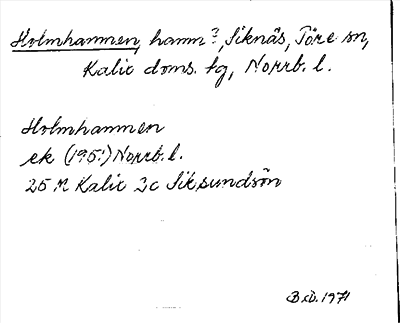 Holmhammen, hamn?, Siknäs, Töre sn,
Kalix doms. tg, Norrb. l.
Holmhammen
ek (1951) Norrb. l.
25 M Kalix 2c Siksundsön
B.D. 1971